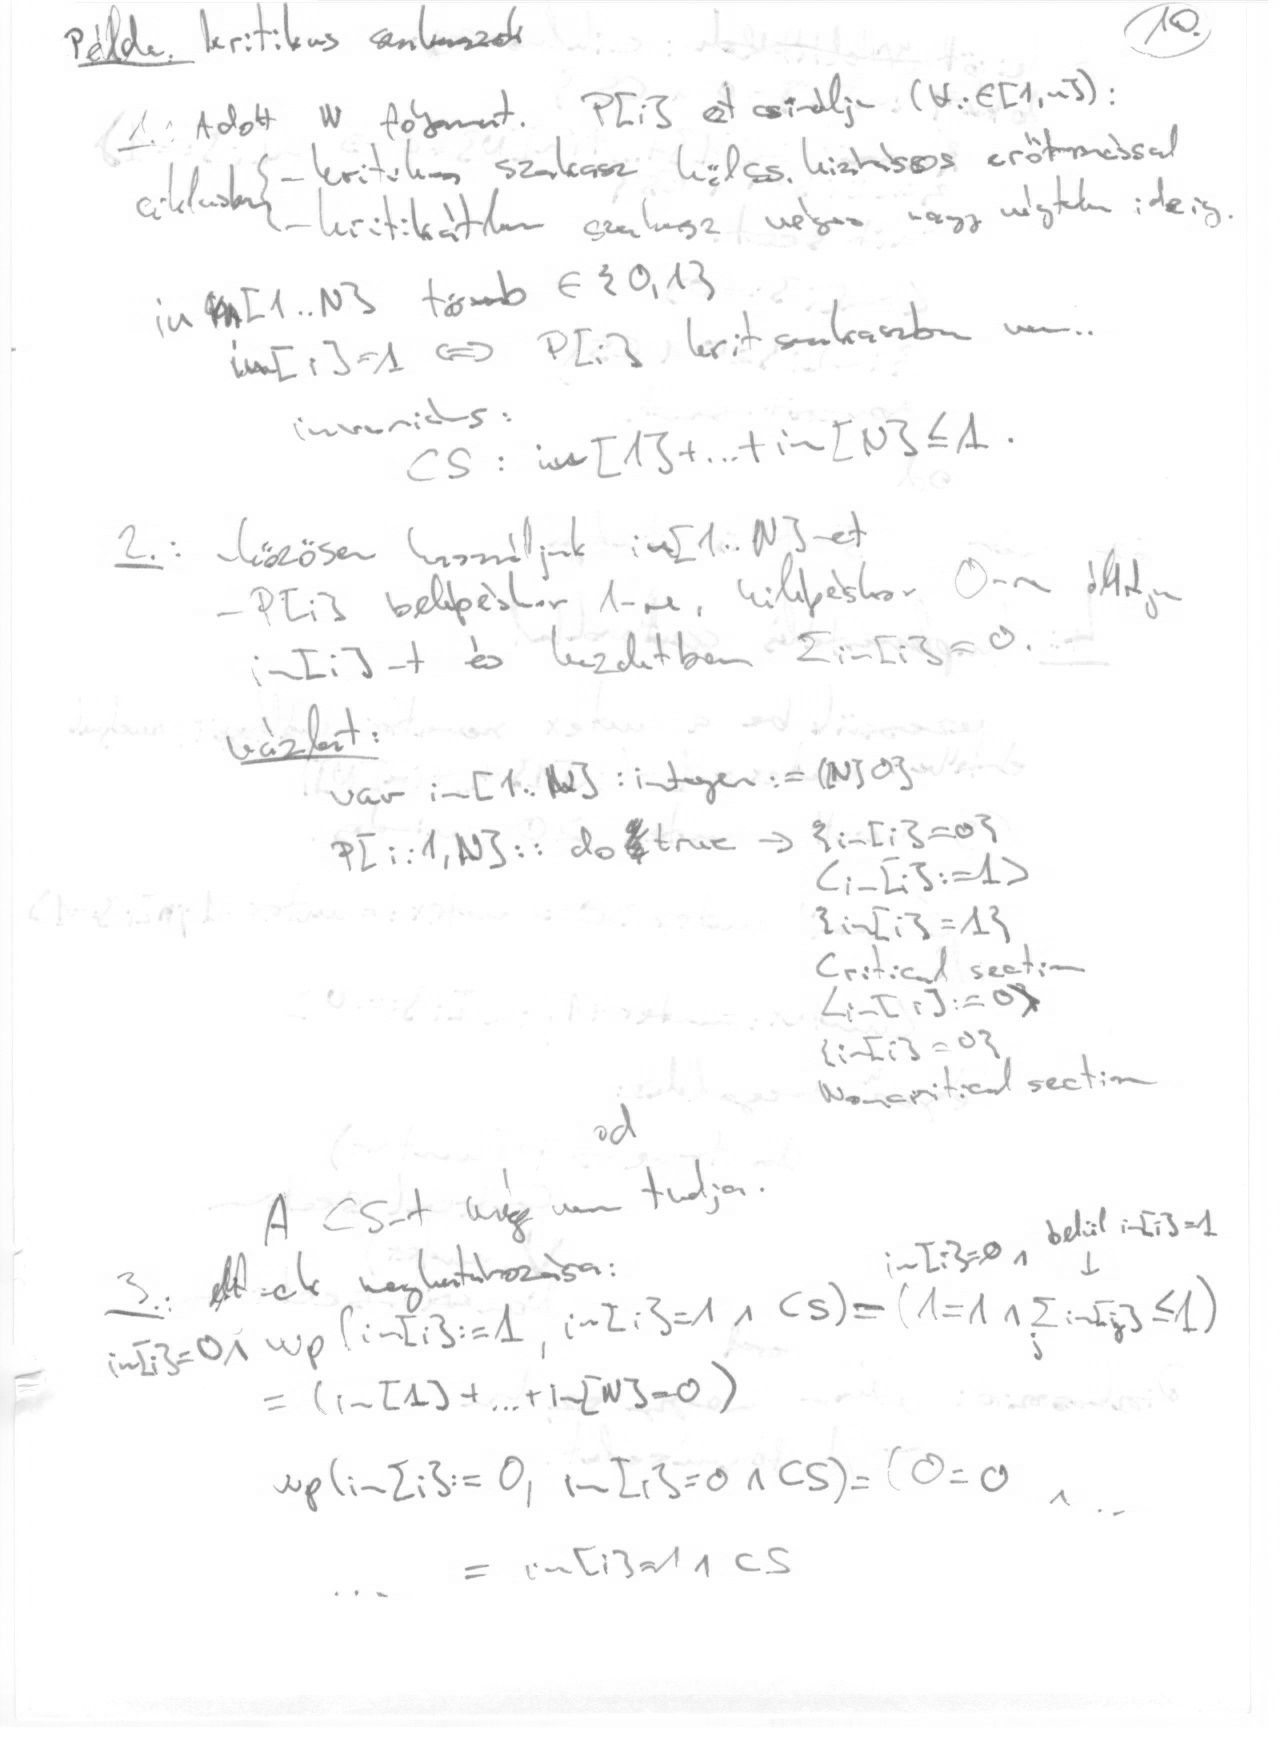 Példa. kritikus szakaszok
10.
1.: Adott N folyamat. P[i] ezt csinálja (∀i∈[1,n]):
ciklusban { – kritikus szakasz kölcs. kizárásos erőforrással
– kritikátlan szakasz véges vagy végtelen ideig.
in [1..N] tömb ∈ {0,1}
in[i]=1 <=> P[i] krit szakaszban van..
invariáns:
CS : in[1]+...+in[N]≤1.
2.: – közösen használjuk in[1..N]-et
– P[i] belépéskor 1-re, kilépéskor 0-ra állítja
in[i]-t és kezdetben Σin[i]=0.
vázlat:
var in[1..N] : integer := ([N] 0)
P[i:1,N]:: do true → {in[i]=0}
<in[i]:=1>
{in[i]=1}
Critical section
<in[i]:=0>
{in[i]=0}
Noncritical section
od
A CS-t még nem tudja.
belül in[i]=1
in[i]=0 ∧ ↓
3.: meghatározása:
in[i]=0∧ wp(in[i]:=1, in[i]=1 ∧ CS)=(1=1 ∧ Σ in[j] ≤1)
j
= (in[1]+...+in[N]=0)
wp(in[i]:=0, in[i]=0 ∧ CS)=(0=0 ∧ ...
... = in[i]=1 ∧ CS